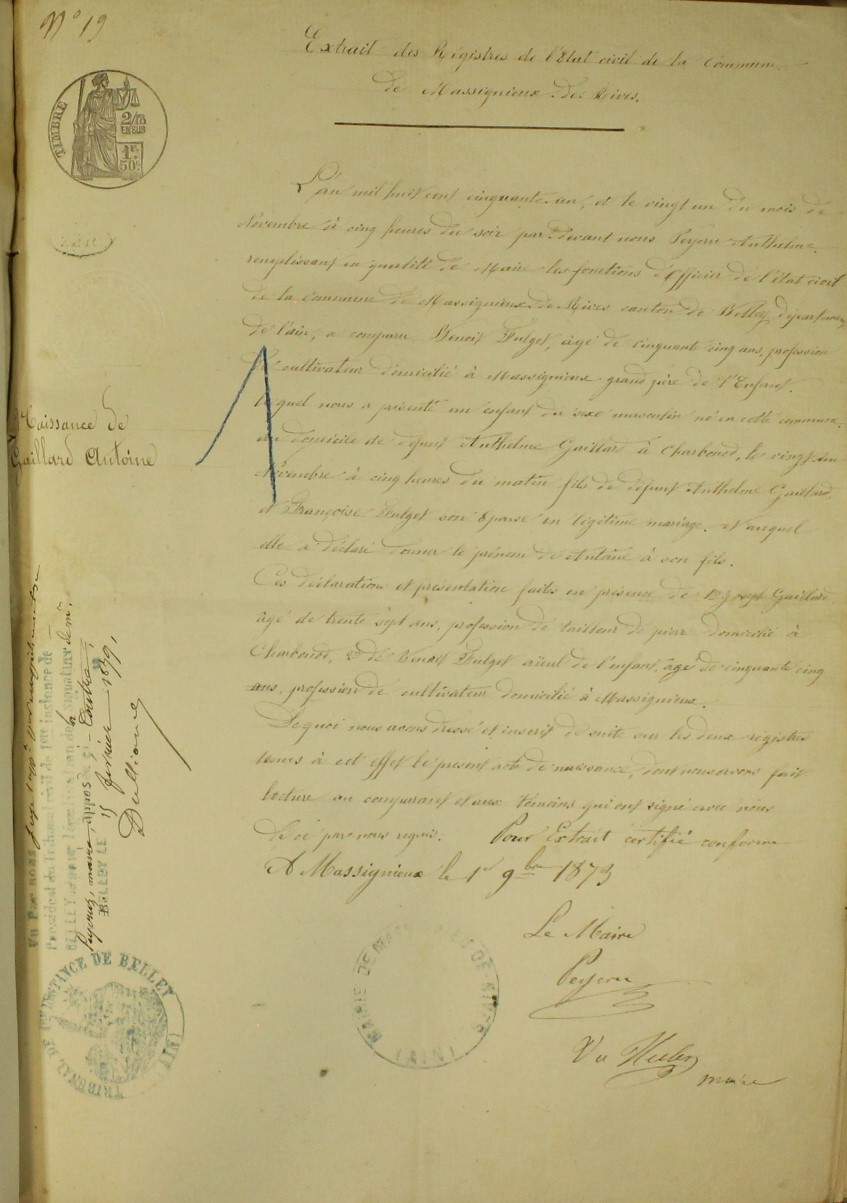 N° 19
Extrait des Régistres de l'Etat civil de la Commune
de Massignieux-de-Rives.
TIMBRE
2/10
EN SUS
1F
50C
L'an mil huit cent cinquante-un, et le vingt un du mois de
Novembre à cinq heures du soir par-devant nous Peyerne Anthelme
remplissant en qualité de Maire les fonctions d'Officier de l'état civil
de la Commune de Massignieux-de-Rives canton de Belley, département
de l'ain, a comparu Benoit Fulget, âgé de cinquante cinq ans, profession
de cultivateur domicilié à Massignieux grand père de l'Enfant.
lequel nous a présenté un enfant du sexe masculin né en cette commune,
au domicile de défunt Anthelme Gaillard à Charbonod, le vingt-un
Novembre à cinq heures du matin fils de défunt Anthelme Gaillard
et Françoise Fulget son épouse en légitime mariage. et auquel
elle a déclaré donner le prénom de Antoine à son fils.
Ces déclaration et présentation faites en présence de 1° Joseph Gaillard
âgé de trente sept ans, profession de tailleur de pierre domicilié à
Charbonod, 2° de Benoit Fulget aïeul de l'enfant, âgé de cinquante cinq
ans, profession de cultivateur domicilié à Massignieux.
De quoi nous avons dressé et inscrit de suite sur les deux registres
tenus à cet effet le présent acte de naissance, dont nous avons fait
lecture au comparant et aux témoins qui ont signé avec nous
de ce par nous requis. Pour Extrait certifié conforme
A Massignieux le 1er 9bre 1873
Le Maire
Peyerne
Vu
maire
Naissance de
Gaillard Antoine
Vu PAR NOUS
Président du Tribunal civil de 1ère instance de
BELLEY
la signature de Mr
maire, apposée ci-contre,
BELLEY LE 15 février 1879,
TRIBUNAL DE 1RE INSTANCE DE BELLEY (AIN)
MAIRIE DE MASSIGNIEU-DE-RIVES (AIN)